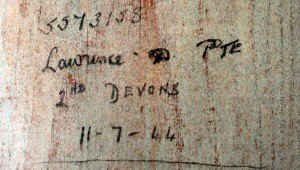 5573158
Lawrence D PTE
2ND DEVONS
11-7-44